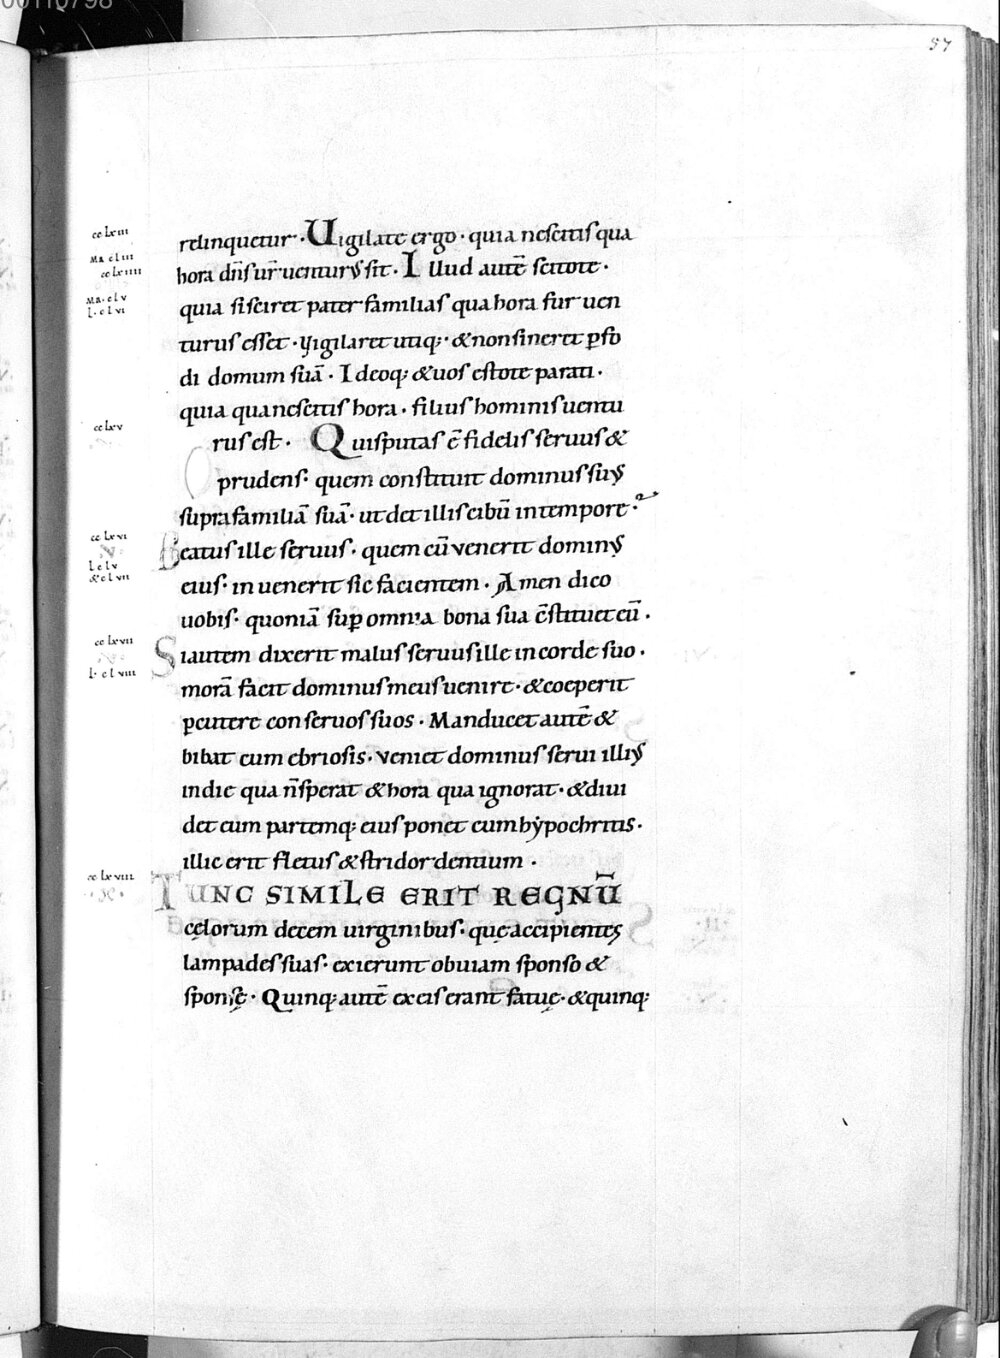 00110798
57
relinquetur · Uigilate ergo · quia nescitis qua
hora dn̄s ur̄ uenturus sit · Illud autē scitote ·
quia si sciret pater familias qua hora fur uen
turus esset · vigilaret utiq; · & non sineret ꝑfo
di domum suā · Ideoq; & uos estote parati ·
quia qua nescitis hora · filius hominis uentu
rus est · Quis putas ē fidelis seruus &
prudens · quem constituit dominus suus
supra familiā suā · ut det illis cibū in tempore ·?
Beatus ille seruus · quem cū venerit dominus
eius · inuenerit sic facientem · Amen dico
uobis · quoniā suꝑ omnia bona sua c̄stituet eū ·
Si autem dixerit malus seruus ille in corde suo ·
morā facit dominus meus uenire · & coeperit
ꝑcutere conseruos suos · Manducet autē &
bibat cum ebriosis · veniet dominus serui illius
in die qua n̄ sperat & hora qua ignorat · & diui
det eum partemq; eius ponet cum hẏpochritis ·
illic erit fletus & stridor dentium ·
TUNC SIMILE ERIT REGNŪ
cęlorum decem uirginibus · quę accipientes
lampades suas · exierunt obuiam sponso &
sponsę · Quinq; autē ex eis erant fatuę · & quinq;
cc lxiii
Ma cliii
cc lxiiii
Ma · clv
L · clvi
cc lxv
cc lxvi
L clv
& clvii
cc lxvii
L · clviii
cc lxviii